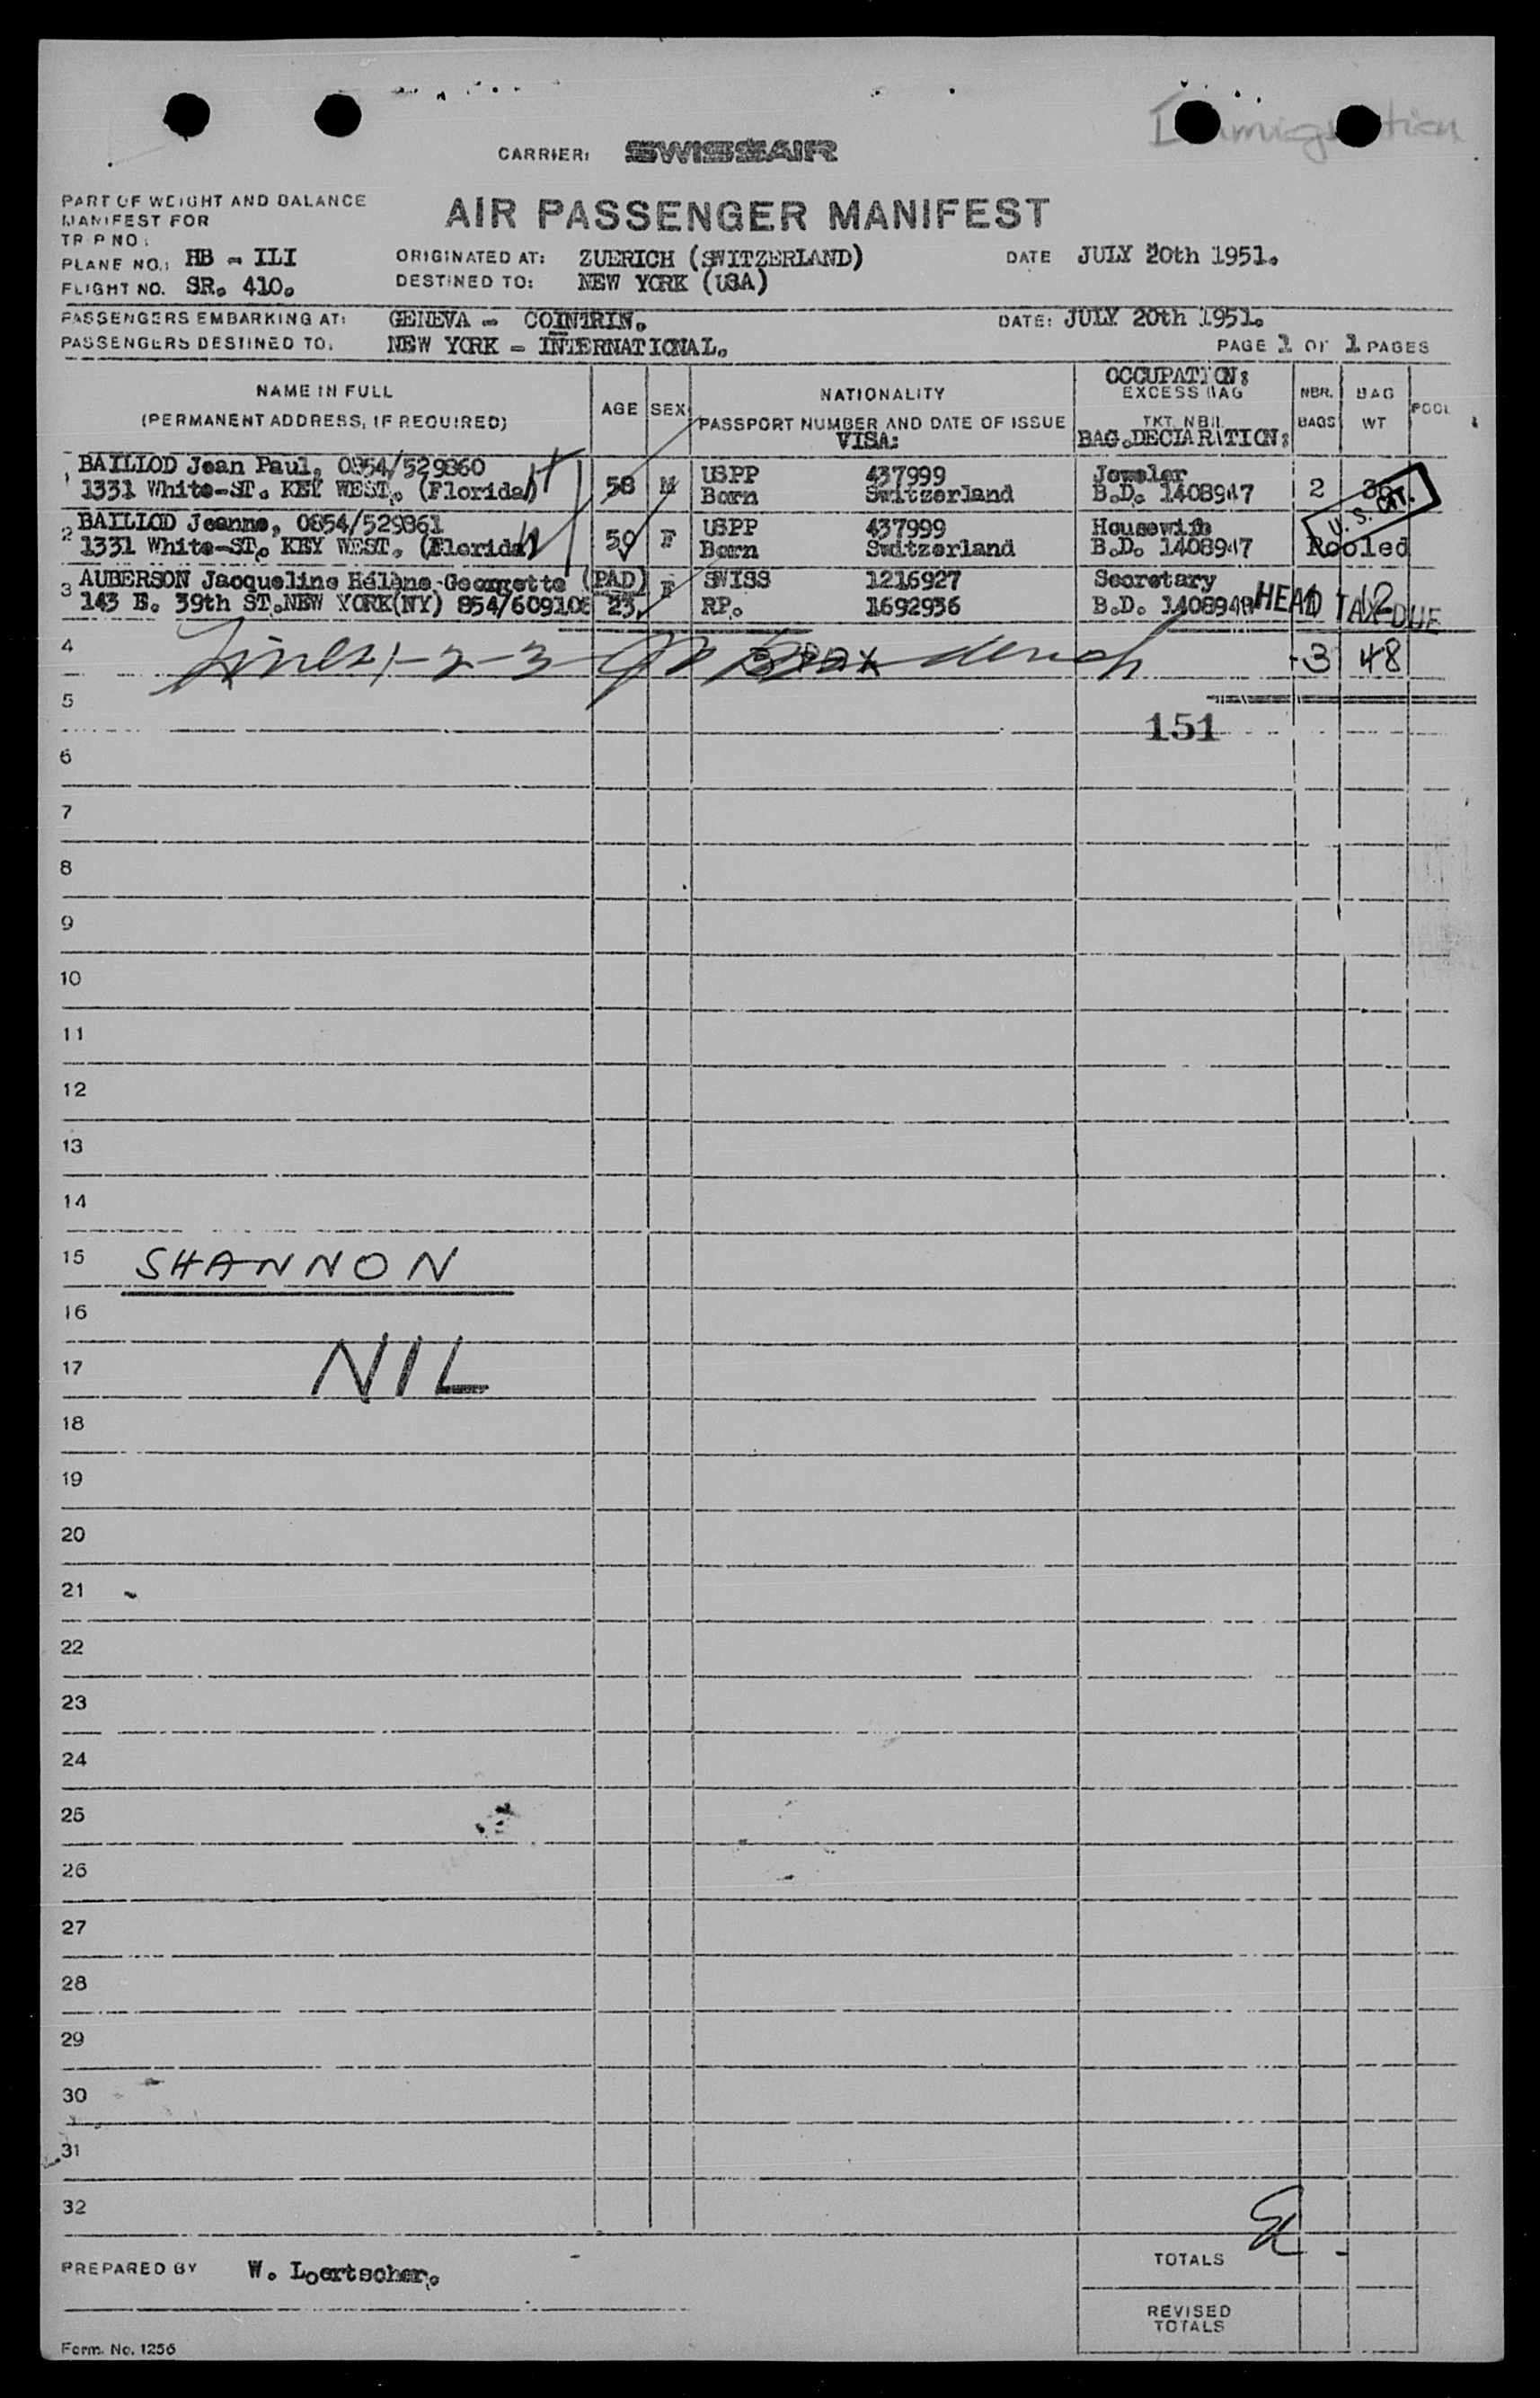 Immigration
CARRIER: SWISSAIR
PART OF WEIGHT AND BALANCE
MANIFEST FOR
TRIP NO:
AIR PASSENGER MANIFEST
PLANE NO.: HB - ILI
ORIGINATED AT: ZUERICH (SWITZERLAND)
DATE JULY 20th 1951.
FLIGHT NO. SR. 410.
DESTINED TO: NEW YORK (USA)
PASSENGERS EMBARKING AT: GENEVA - COINTRIN.
DATE: JULY 20th 1951.
PASSENGERS DESTINED TO: NEW YORK - INTERNATIONAL.
PAGE 1 OF 1 PAGES
NAME IN FULL
(PERMANENT ADDRESS, IF REQUIRED)
AGE
SEX
NATIONALITY
PASSPORT NUMBER AND DATE OF ISSUE
VISA:
OCCUPATION:
EXCESS BAG
TKT. NBR.
BAG.DECLARATION:
NBR.
BAGS
BAG
WT
POOL
1 BAILLOD Jean Paul, 0854/529860 58 M USPP 437999 Jeweler 2 36
1331 White-ST. KEY WEST. (Florida) Born Switzerland B.D. 1408947
U. S. CIT.
2 BAILLOD Jeanne, 0854/529861 50 F USPP 437999 Housewife
1331 White-ST. KEY WEST. (Florida) Born Switzerland B.D. 1408947 Pooled
3 AUBERSON Jacqueline Hélène-Georgette (PAD) F SWISS 1216927 Secretary
143 E. 39th ST.NEW YORK(NY) 854/609108 23. RP. 1692936 B.D. 1408948 1 12
HEAD TAX DUE
4 Lines 1-2-3 3 PAX 3 48
5
151
6
7
8
9
10
11
12
13
14
15 SHANNON
16
17 NIL
18
19
20
21
22
23
24
25
26
27
28
29
30
31
32
PREPARED BY W. Loertscher.
TOTALS
REVISED
TOTALS
Form. No. 1256